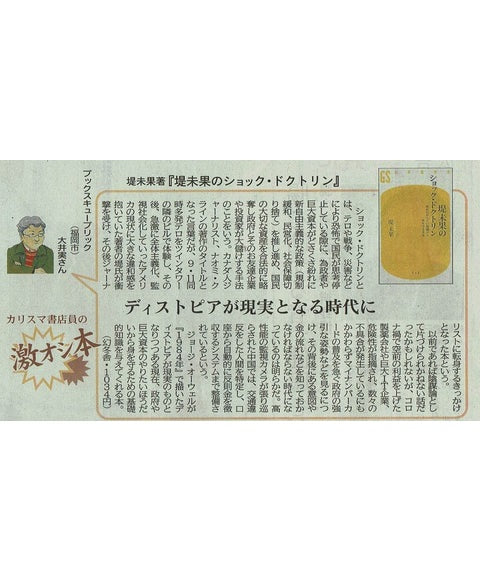 堤未果著『堤未果のショック・ドクトリン』
GS
堤未果の
ショック・ドクトリン
堤未果
ブックスキューブリック
(福岡市)
大井実さん
カリスマ書店員の
激オシ本
ディストピアが現実となる時代に
ショック・ドクトリンと
は、テロや戦争、災害など
により恐怖で国民が思考停
止している際に、為政者や
巨大資本がどさくさ紛れに
新自由主義的な政策(規制
緩和、民営化、社会保障切
り捨て)を推し進め、国民
の大切な資産を合法的に略
奪し政府とそのお友達企業
や投資家が大儲けする手法
のことをいう。カナダ人ジ
ャーナリスト、ナオミ・ク
ラインの著作のタイトルと
なった言葉だが、9・11同
時多発テロをツインタワー
の隣のビルで体験し、その
後、急激に全体主義化、監
視社会化していったアメリ
カの現状に大きな違和感を
抱いていた著者の堤氏が衝
撃を受け、その後ジャーナ
リストに転身するきっかけ
となった本という。
以前であれば陰謀論とし
て片付けられかねない話だ
ったかもしれないが、コロ
ナ禍で空前の利益を上げた
製薬会社や巨大IT企業、
危険性が指摘され、数々の
不具合が発生しているにも
かかわらずマイナンバーカ
ードの普及を急ぐ政府の強
引な姿勢などを見るにつ
け、その背後にある意図や
金の流れなどを知っておか
なければならない時代にな
っているのは明らかだ。高
性能の監視カメラが張り巡
らされた中国では、交通違
反をすると人間を特定し、口
座から自動的に反則金を徴
収するシステムまで整備さ
れているという。
ジョージ・オーウェルが
『1984年』で描いたデ
ィストピアが現実のものと
なりつつある今、政府や
巨大資本のやりたいほうだ
いから身を守るための基礎
的知識を与えてくれる本。
(幻冬舎・1034円)